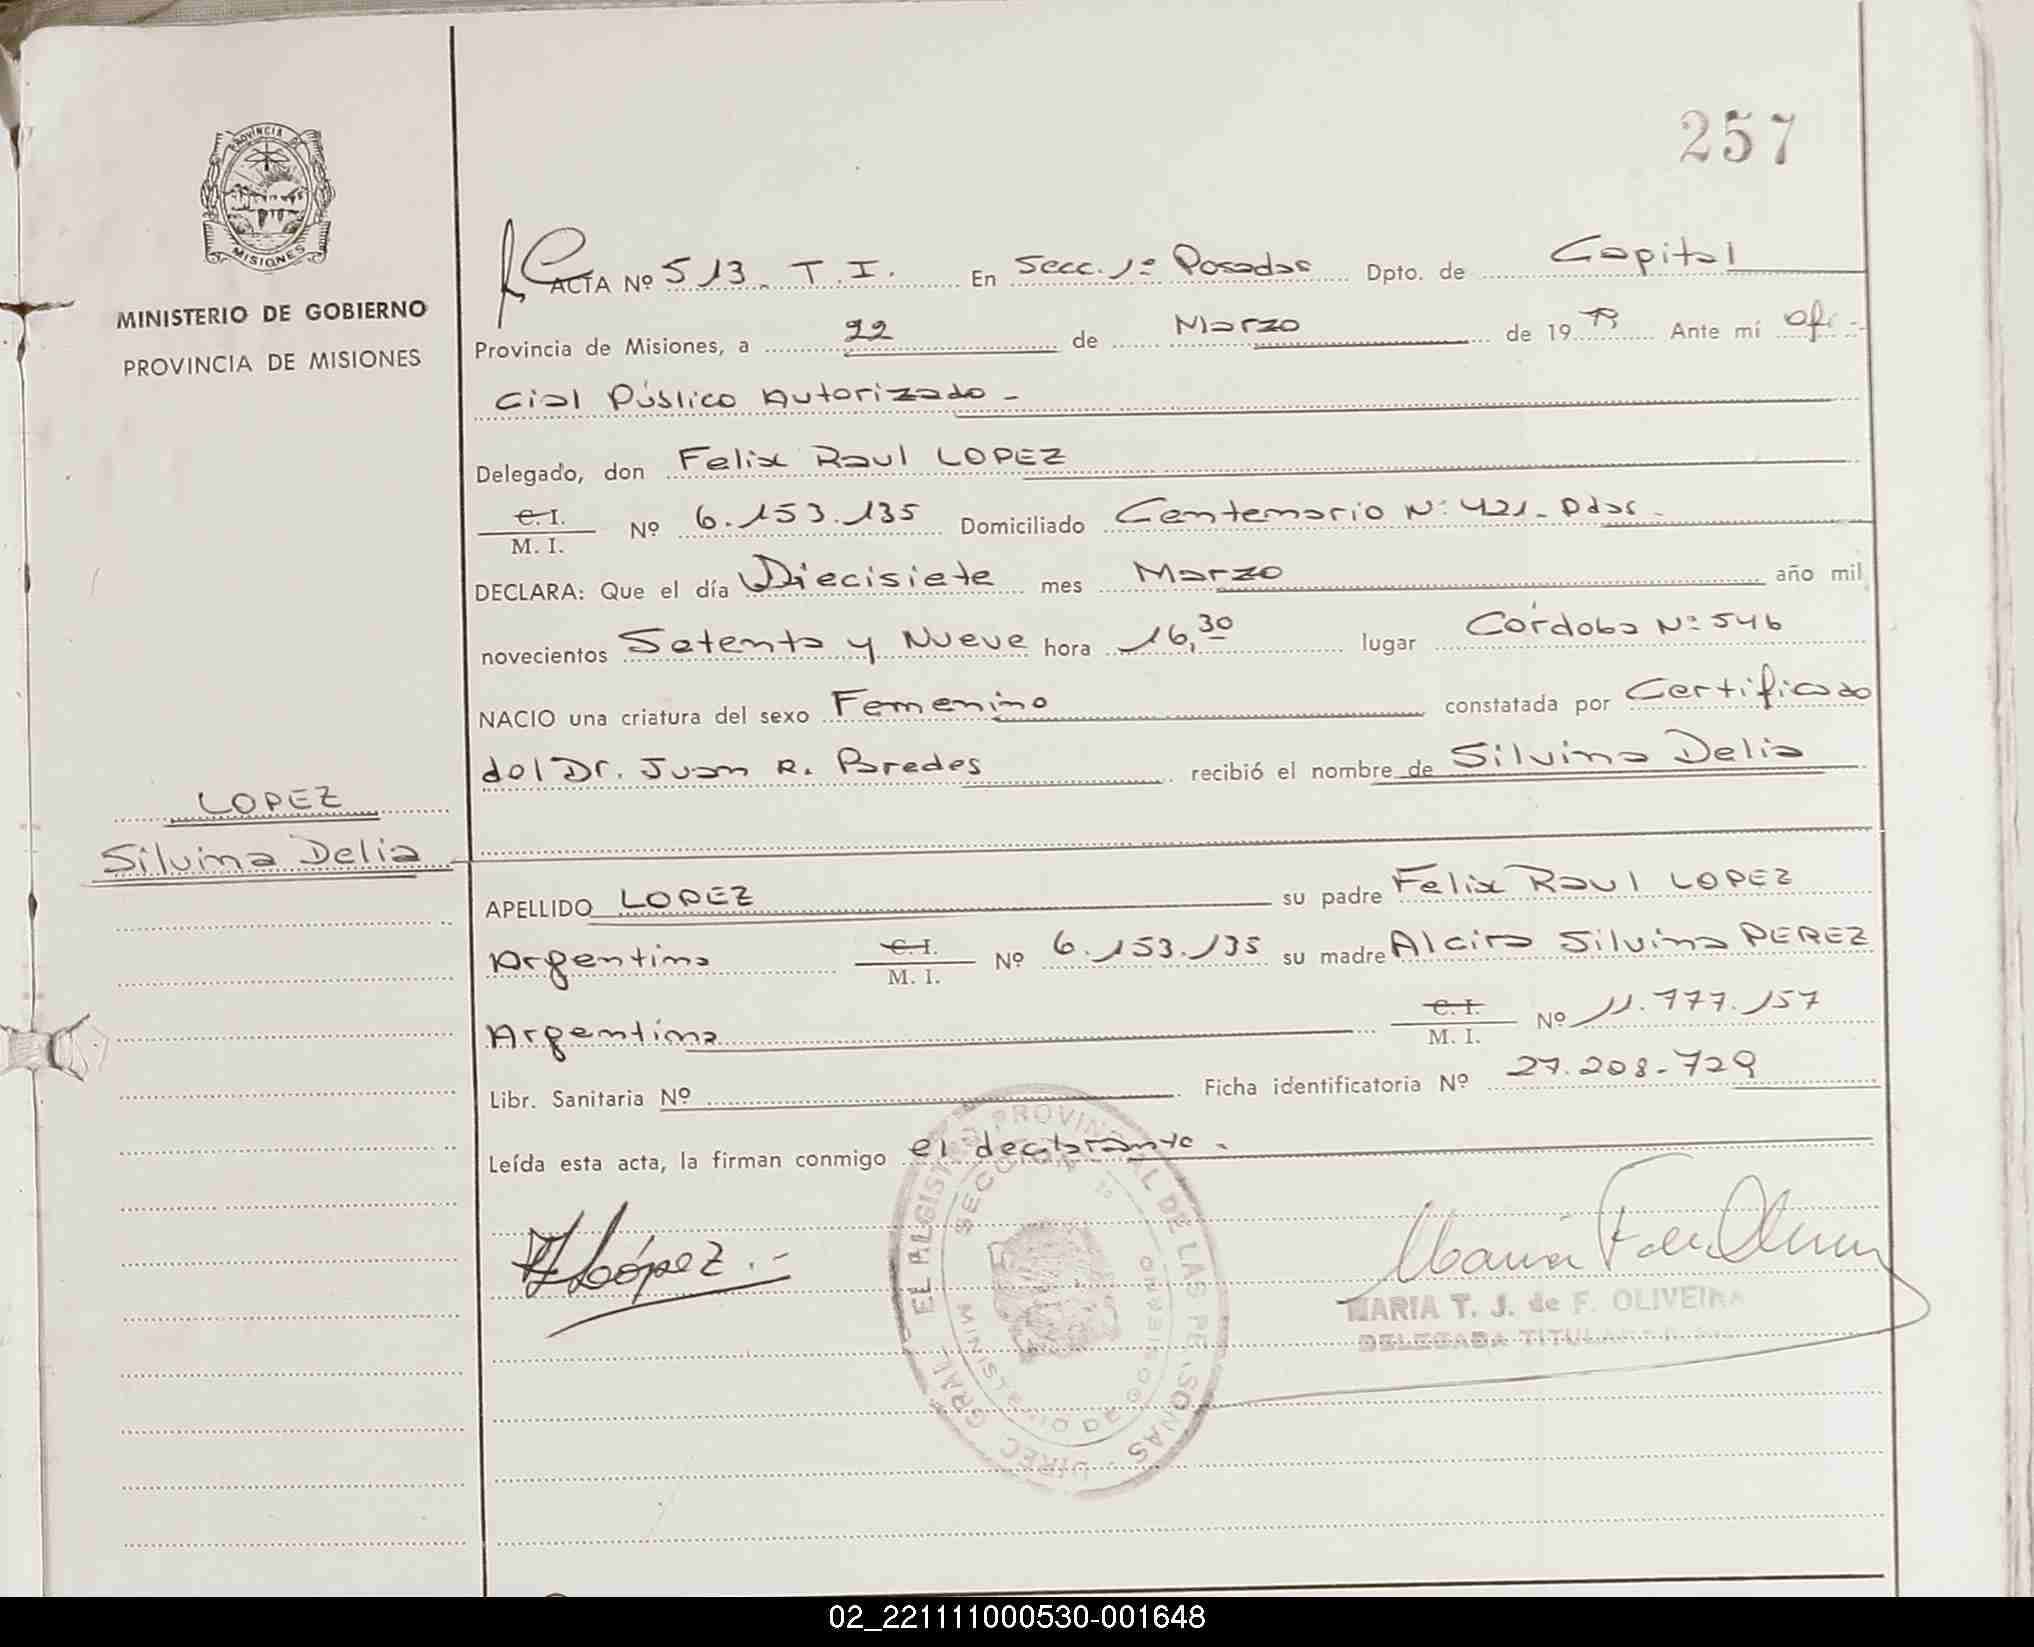 257
PROVINCIA DE
MISIONES
MINISTERIO DE GOBIERNO
PROVINCIA DE MISIONES
LOPEZ
Silvina Delia
ACTA Nº 513. T. I. En Secc. 1º Posadas Dpto. de Capital
Provincia de Misiones, a 22 de Marzo de 1979 Ante mí Ofi-
cial Público Autorizado -
Delegado, don Felix Raul LOPEZ
C. I.
M. I. Nº 6.153.135 Domiciliado Centenario Nº 421. Pdas.
DECLARA: Que el día Diecisiete mes Marzo año mil
novecientos Setenta y Nueve hora 16,30 lugar Córdoba Nº 546
NACIO una criatura del sexo Femenino constatada por Certificado
del Dr. Juan R. Paredes recibió el nombre de Silvina Delia
APELLIDO LOPEZ su padre Felix Raul LOPEZ
Argentino C. I. M. I. Nº 6.153.135 su madre Alcira Silvina PEREZ
Argentina C. I. M. I. Nº 11.777.157
Libr. Sanitaria Nº Ficha identificatoria Nº 27.208.729
Leída esta acta, la firman conmigo el declarante.
López.-
MARIA T. J. de F. OLIVEIRA
DELEGADA TITULAR
DIREC GRAL EL REGISTRO PROVINCIAL DE LAS PERSONAS
SECCION 1º
MINISTERIO DE GOBIERNO
02_221111000530-001648